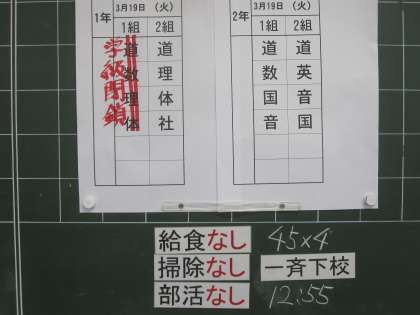 1年 3月19日 (火)
1組 2組
道 道
数 理
理 体
体 社
学級閉鎖
2年 3月19日 (火)
1組 2組
道 道
数 英
国 音
音 国
給食なし 45×4
掃除なし 一斉下校
部活なし 12:55